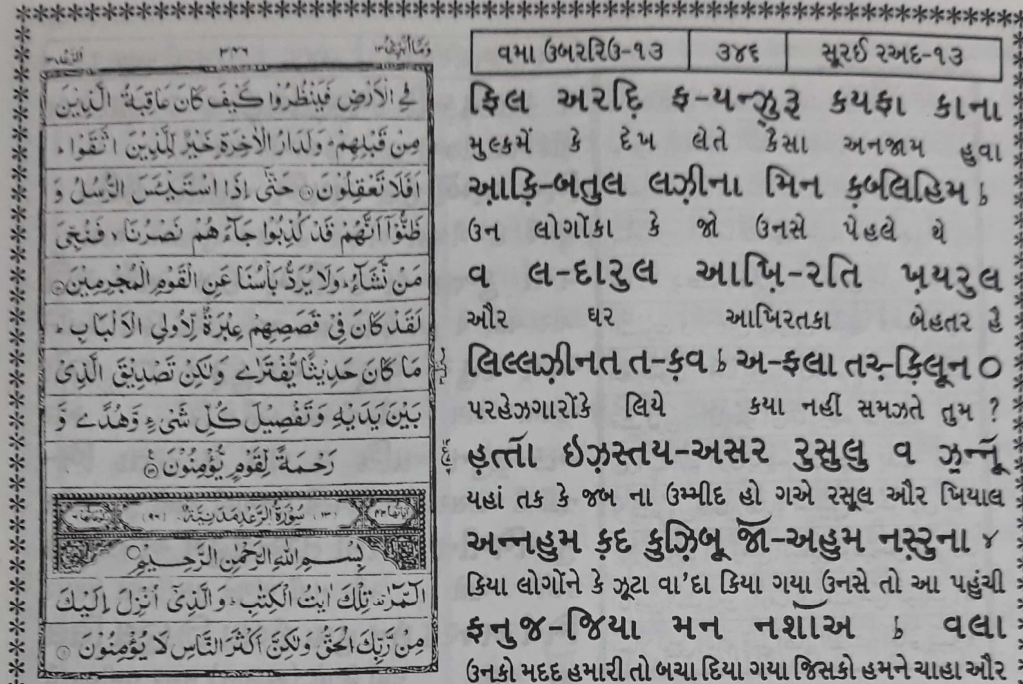 وما ابرئ ١٣
٣٤٦
الرعد ١٣
فِي الْاَرْضِ فَيَنْظُرُوْا كَيْفَ كَانَ عَاقِبَةُ الَّذِيْنَ
مِنْ قَبْلِهِمْ ؕ وَلَدَارُ الْاٰخِرَةِ خَيْرٌ لِّلَّذِيْنَ اتَّقَوْا ؕ
اَفَلَا تَعْقِلُوْنَ ۝ حَتّٰۤى اِذَا اسْتَيْـَٔسَ الرُّسُلُ وَ
ظَنُّوْۤا اَنَّهُمْ قَدْ كُذِبُوْا جَآءَهُمْ نَصْرُنَا ۙ فَنُجِّيَ
مَنْ نَّشَآءُ ؕ وَلَا يُرَدُّ بَاْسُنَا عَنِ الْقَوْمِ الْمُجْرِمِيْنَ ۝
لَقَدْ كَانَ فِيْ قَصَصِهِمْ عِبْرَةٌ لِّاُولِي الْاَلْبَابِ ؕ
مَا كَانَ حَدِيْثًا يُّفْتَرٰى وَلٰكِنْ تَصْدِيْقَ الَّذِيْ
بَيْنَ يَدَيْهِ وَتَفْصِيْلَ كُلِّ شَيْءٍ وَّهُدًى وَّ
رَحْمَةً لِّقَوْمٍ يُّؤْمِنُوْنَ ۝
سُوْرَةُ الرَّعْدِ مَدَنِيَّةٌ
بِسْمِ اللّٰهِ الرَّحْمٰنِ الرَّحِيْمِ ۝
الٓمّٓرٰ ۫ تِلْكَ اٰيٰتُ الْكِتٰبِ ؕ وَالَّذِيْۤ اُنْزِلَ اِلَيْكَ
مِنْ رَّبِّكَ الْحَقُّ وَلٰكِنَّ اَكْثَرَ النَّاسِ لَا يُؤْمِنُوْنَ ۝
વમા ઉબરરિઉ-૧૩ ૩૪૬ સૂરઈ રઅદ-૧૩
ફિલ અરદિ ફ-યન્ઝુરૂ કયફા કાના
મુલ્કમેં કે દેખ લેતે કૈસા અનજામ હુવા
આકિ-બતુલ લઝીના મિન કબ્લિહિમ ؕ
ઉન લોગોંકા કે જો ઉનસે પેહલે થે
વ લ-દારુલ આખિ-રતિ ખયરુલ
ઔર ઘર આખિરતકા બેહતર હૈ
લિલ્લઝીનત ત-કવ ؕ અ-ફલા તઅ્-કિલૂન O
પરહેઝગારોંકે લિયે કયા નહીં સમઝતે તુમ ?
હત્તૉ ઇઝસ્તય-અસર રુસુલુ વ ઝન્નૂ
યહાં તક કે જબ ના ઉમ્મીદ હો ગએ રસૂલ ઔર ખિયાલ
અન્નહુમ કદ કુઝિબૂ જૉ-અહુમ નસ્રુના ૪
કિયા લોગોંને કે ઝૂટા વા'દા કિયા ગયા ઉનસે તો આ પહુંચી
ફનુજ-જિયા મન નશૉઅ ؕ વલા
ઉનકો મદદ હમારી તો બચા દિયા ગયા જિસકો હમને ચાહા ઔર